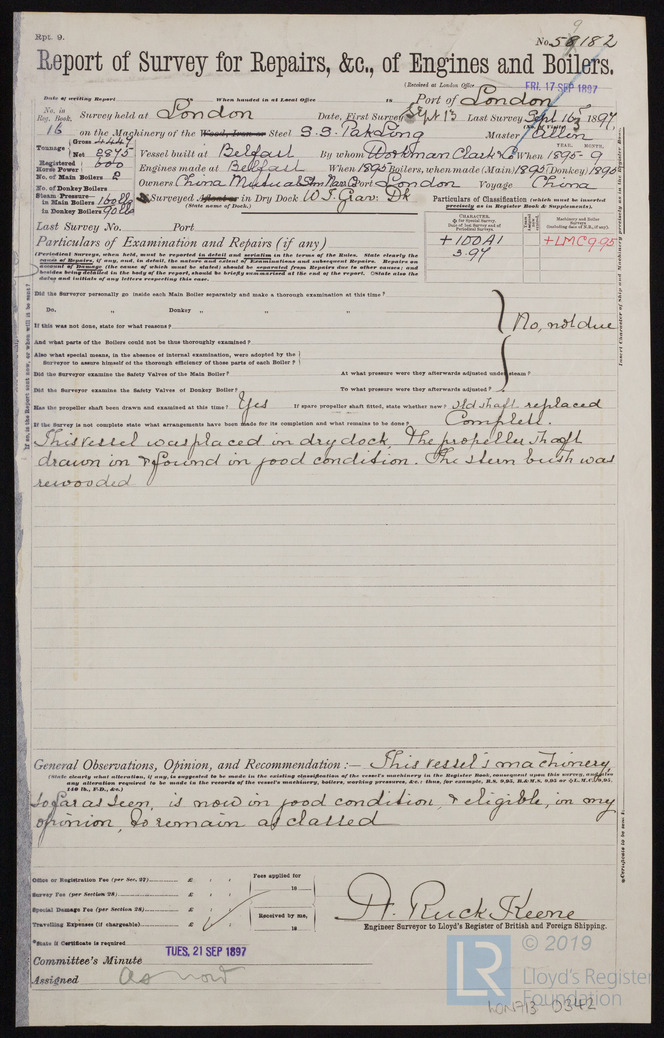 Rpt. 9.
No. 59182
Report of Survey for Repairs, &c., of Engines and Boilers.
(Received at London Office FRI. 17 SEP 1897
Date of writing Report When handed in at Local Office 18 Port of London
No. in Reg. Book. Survey held at London Date, First Survey Sept 13 Last Survey Sept 16 1897
(No. of Visits 3
16 on the Machinery of the Wood, Iron or Steel S.S. Pak Ling Master Allen
Tonnage Gross 4447 Net 2875
Vessel built at Belfast By whom Workman Clark & Co When 1895-9
YEAR. MONTH.
Registered Horse Power 600
Engines made at Belfast When 1895 Boilers, when made (Main) 1895 (Donkey) 1895
No. of Main Boilers 2
Owners China Mutual Stm Nav Co Port London Voyage China
No. of Donkey Boilers
Steam Pressure in Main Boilers 160 lb
in Donkey Boilers 90 lbs
If Surveyed Afloat or in Dry Dock W.I. Grav. Dk
(State name of Dock.)
Particulars of Classification (which must be inserted precisely as in Register Book & Supplements).
Last Survey No. Port
CHARACTER.
Machinery and Boiler Surveys
+100A1
3.97
+LMC 9.95
Particulars of Examination and Repairs (if any)
(Periodical Surveys, when held, must be reported in detail and seriatim in the terms of the Rules. State clearly the
cause of Repairs, if any, and, in detail, the nature and extent of Examinations and subsequent Repairs. Repairs on
account of Damage (the cause of which must be stated) should be separated from Repairs due to other causes; and
besides being detailed in the body of the report, should be briefly summarised at the end of the report. State also the
dates and initials of any letters respecting this case.
Did the Surveyor personally go inside each Main Boiler separately and make a thorough examination at this time?
Do. „ Donkey „ „ „
If this was not done, state for what reasons?
No, not due
And what parts of the Boilers could not be thoroughly examined?
Also what special means, in the absence of internal examination, were adopted by the
Surveyor to assure himself of the thorough efficiency of those parts of each Boiler?
Did the Surveyor examine the Safety Valves of the Main Boiler? At what pressure were they afterwards adjusted under steam?
Did the Surveyor examine the Safety Valves of Donkey Boiler? To what pressure were they afterwards adjusted?
Has the propeller shaft been drawn and examined at this time? Yes If spare propeller shaft fitted, state whether new? Old shaft replaced
If the Survey is not complete state what arrangements have been made for its completion and what remains to be done? Complete.
This vessel was placed in dry dock, The propeller shaft
drawn in & found in good condition. The stern bush was
rewooded
General Observations, Opinion, and Recommendation:— This vessel's machinery,
(State clearly what alteration, if any, is suggested to be made in the existing classification of the vessel's machinery in the Register Book, consequent upon this survey, and also
any alteration required to be made in the records of the vessel's machinery, boilers, working pressures, &c.: thus, for example, B.S. 9,95, B.&M.S. 9,95 or L.M.C. 9,95,
140 lb., F.D., &c.)
so far as seen, is now in good condition, & eligible, in my
opinion, to remain as classed
Office or Registration Fee (per Sec. 27) £
Survey Fee (per Section 28) £
Special Damage Fee (per Section 28) £
Travelling Expenses (if chargeable) £
Fees applied for
18
Received by me,
18
H. Ruck Keene
Engineer Surveyor to Lloyd's Register of British and Foreign Shipping.
*State if Certificate is required
Committee's Minute TUES. 21 SEP 1897
Assigned as now
LR
© 2019
Lloyd's Register
Foundation
LON713-0342